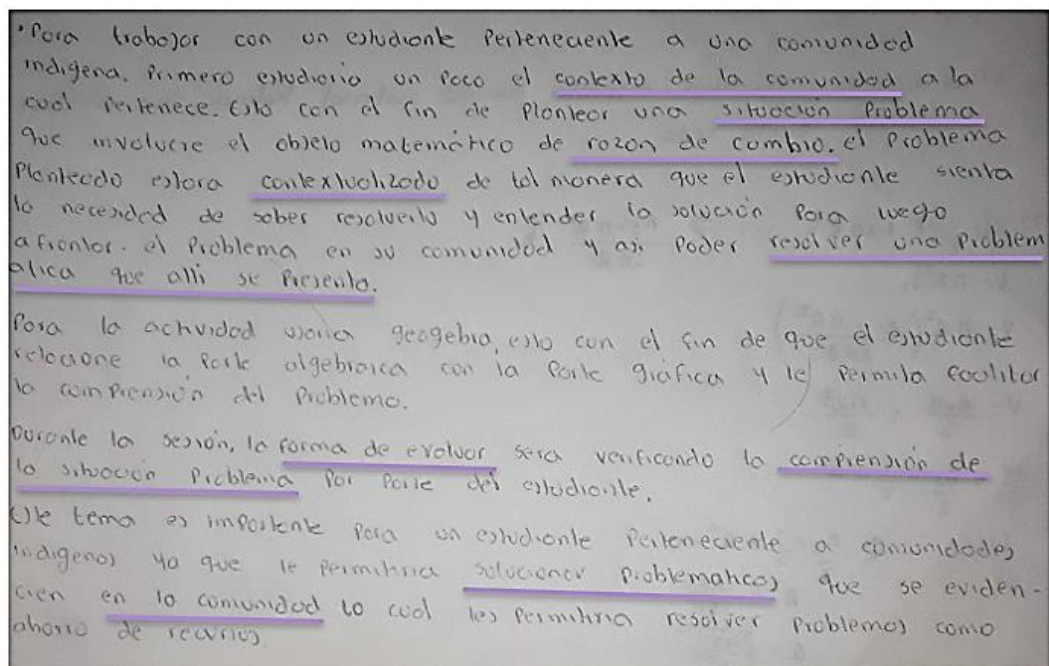 • Para trabajar con un estudiante Perteneciente a una comunidad
indigena. Primero estudiaria un Poco el contexto de la comunidad a la
cual Pertenece. Esto con el fin de Plantear una situación Problema
que involucre el objeto matemático de razon de cambio. el Problema
Planteado estara contextualizado de tal manera que el estudiante sienta
la necesidad de saber resolverlo y entender la solución Para luego
afrontar. el Problema en su comunidad y asi Poder resolver una Problem
atica que alli se Presenta.
Para la actividad usaria geogebra, esto con el fin de que el estudiante
relacione la Parte algebraica con la Parte gráfica y le Permita facilitar
la comprensión del Problema.
Durante la sesión, la forma de evaluar sera verificando la comprensión de
la situación Problema Por Parte del estudiante.
Este tema es importante Para un estudiante Perteneciente a comunidades
indigenas ya que le Permitiria solucionar Problematicas que se eviden-
cien en la comunidad lo cual les Permitiria resolver Problemas como
ahorro de recursos